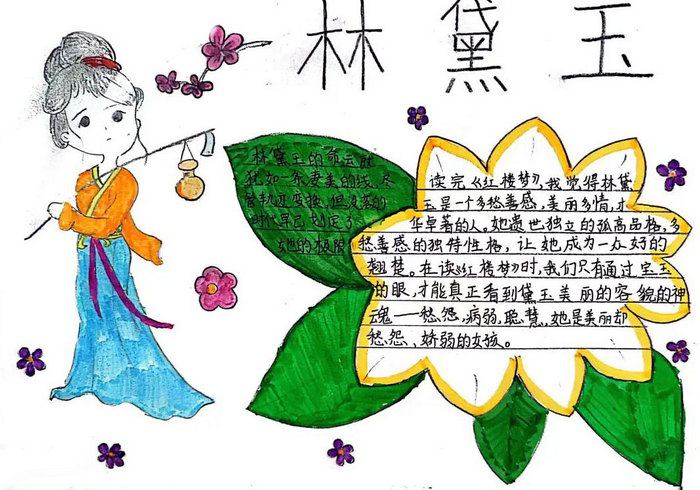 林黛玉
林黛玉的命运就
犹如一条凄美的线,尽
管轨迹变换,但没落的
时代早已划定了
她的极限
读完《红楼梦》,我觉得林黛
玉是一个多愁善感,美丽多情,才
华卓著的人。她遗世独立的孤高品格,多
愁善感的独特性格,让她成为一众好的
翘楚。在读《红楼梦》时,我们只有通过宝玉
的眼,才能真正看到黛玉美丽的容貌的神
魂——愁怨,病弱,聪慧,她是美丽却
愁怨、娇弱的女孩。